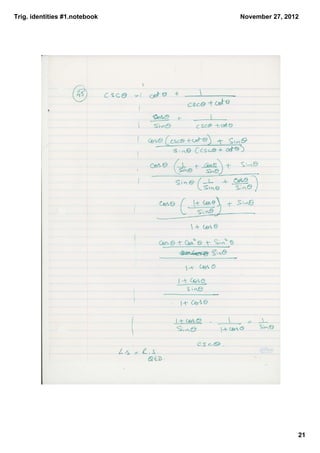 Trig. identities #1.notebook
November 27, 2012
45
cscθ = cotθ + 1 / (cscθ + cotθ)
cosθ / sinθ + 1 / (cscθ + cotθ)
cosθ (cscθ + cotθ) + sinθ / sinθ (cscθ + cotθ)
cosθ (1 / sinθ + cosθ / sinθ) + sinθ / sinθ (1 / sinθ + cosθ / sinθ)
cosθ (1 + cosθ / sinθ) + sinθ / 1 + cosθ
cosθ + cos²θ + sin²θ / sinθ / 1 + cosθ
1 + cosθ / sinθ / 1 + cosθ
1 + cosθ / sinθ · 1 / 1 + cosθ = 1 / sinθ
cscθ
LS = RS
QED
21